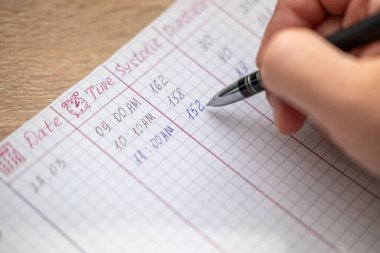 Date Time Systolic Diastolic
22.03 09:00AM 162 90
10:10AM 158 90
11:00AM 152